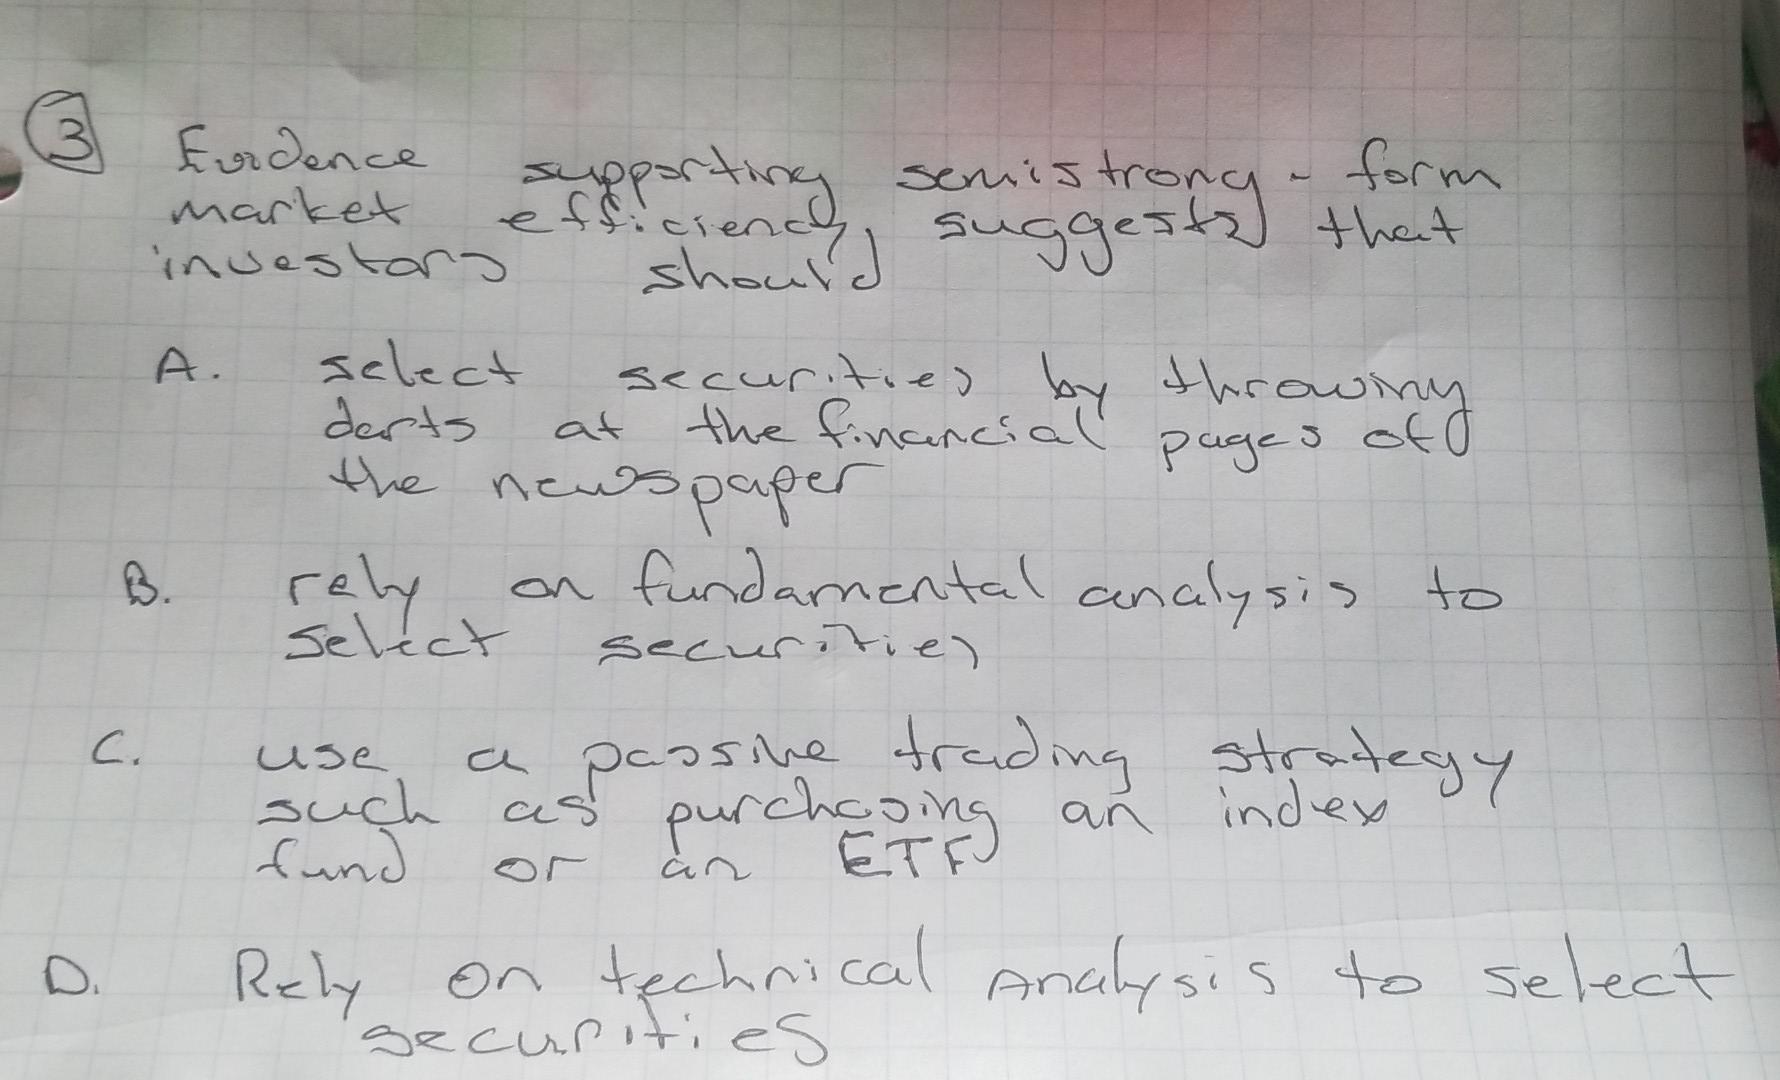 3 Evidence supporting semistrong - form
market efficiency, suggests that
investors should
A. select securities by throwing
darts at the financial pages of
the newspaper
B. rely on fundamental analysis to
select securities
C. use a passive trading strategy
such as purchasing an index
fund or an ETF
D. Rely on technical Analysis to select
securities